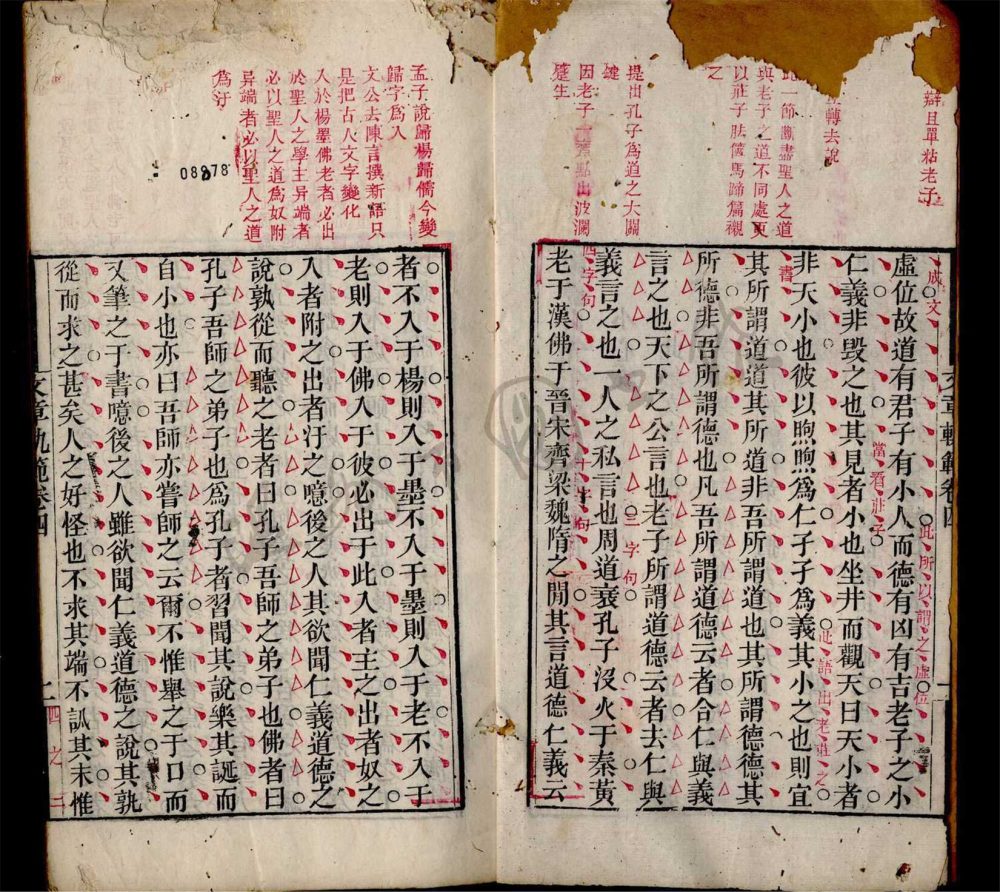 辯且單粘老子
轉去說
此一節斷盡聖人之道
與老子之道不同處更
以莊子胠篋馬蹄篇襯
之
提出孔子為道之大關
鍵
因老子一
點出波瀾
蹙生
成文
此所以謂之虛位
虛位故道有君子有小人而德有凶有吉老子之小
當看莊子
仁義非毀之也其見者小也坐井而觀天曰天小者
此語出老莊之
非天小也彼以煦煦為仁孑孑為義其小之也則宜
書
其所謂道道其所道非吾所謂道也其所謂德德其
所德非吾所謂德也凡吾所謂道德云者合仁與義
言之也天下之公言也老子所謂道德云者去仁與
三字句
義言之也一人之私言也周道衰孔子沒火于秦黃
四字句
十字句
老于漢佛于晉宋齊梁魏隋之間其言道德仁義云
文章軌範卷四
一
孟子說歸楊歸儒今變
歸字為入
文公去陳言撰新語只
是把古人文字變化
入於楊墨佛老者必出
於聖人之學主异端者
必以聖人之道為奴附
异端者必以聖人之道
為汙
08878
者不入于楊則入于墨不入于墨則入于老不入于
老則入于佛入于彼必出于此入者主之出者奴之
入者附之出者汙之噫後之人其欲聞仁義道德之
說孰從而聽之老者曰孔子吾師之弟子也佛者曰
孔子吾師之弟子也為孔子者習聞其說樂其誕而
自小也亦曰吾師亦嘗師之云爾不惟舉之于口而
又筆之于書噫後之人雖欲聞仁義道德之說其孰
從而求之甚矣人之好怪也不求其端不訊其末惟
文章軌範卷四
二
四之二